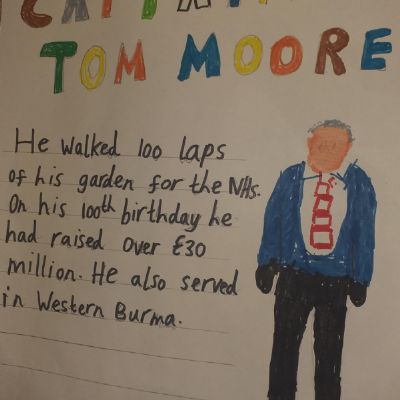 CAPTAIN
TOM MOORE
He walked 100 laps
of his garden for the NHS.
On his 100th birthday he
had raised over £30
million. He also served
in Western Burma.